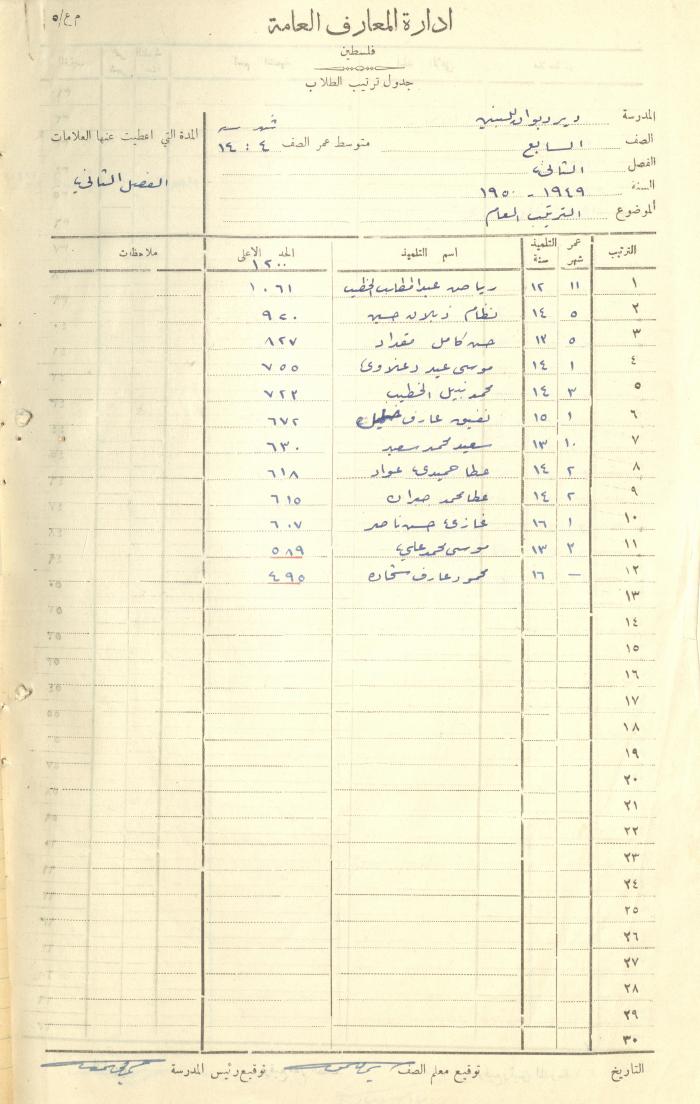 م ع/٥
ادارة المعارف العامة
فلسطين
جدول ترتيب الطلاب
المدرسة ديردبوان للبنين
الصف السابع متوسط عمر الصف شهر سنة ٤ : ١٤ المدة التي اعطيت عنها العلامات
الفصل الثاني الفصل الثاني
السنة ١٩٤٩ - ١٩٥٠
الموضوع الترتيب العام
الترتيب عمر التلميذ شهر سنة اسم التلميذ الحد الاعلى ١٢٠٠ ملاحظات
١ ١١ ١٢ رياض عبد المطلب الخطيب ١٠٦١
٢ ٥ ١٤ نظام ذيلان حسين ٩٢٠
٣ ٥ ١٣ حسن كامل مقداد ٨٢٧
٤ ١ ١٤ موسى عيد ٧٥٥
٥ ٣ ١٤ محمد نبيل الخطيب ٧٢٣
٦ ١ ١٥ عارف ٦٧٢
٧ ١٠ ١٣ سعيد محمد سعيد ٦٣٠
٨ ٢ ١٤ عطا حميدي عواد ٦١٨
٩ ٢ ١٤ عطا محمد جبران ٦١٥
١٠ ١ ١٦ غازي حسن ناصر ٦٠٧
١١ ٢ ١٣ موسى محمد علي ٥٨٩
١٢ — ١٦ محمود عارف شحاده ٤٩٥
١٣
١٤
١٥
١٦
١٧
١٨
١٩
٢٠
٢١
٢٢
٢٣
٢٤
٢٥
٢٦
٢٧
٢٨
٢٩
٣٠
التاريخ توقيع معلم الصف توقيع رئيس المدرسة